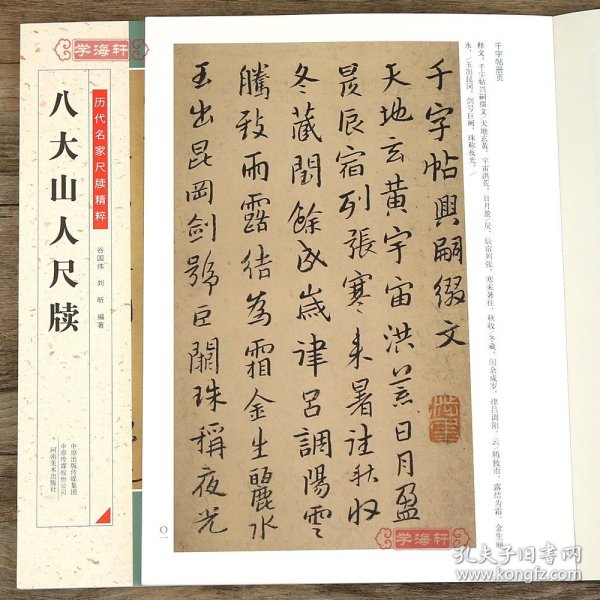 学海轩
历代名家尺牍精粹
八大山人尺牍
谷国伟 刘昕 编著
中原出版传媒集团
中原传媒股份公司
河南美术出版社
千字帖册页
释文：千字帖兴嗣掇文/天地玄黄，宇宙洪荒。日月盈/昃，辰宿列张。寒来暑往，秋收/冬藏。闰余成岁，律吕调阳。云/腾致雨，露结为霜。金生丽
水，/玉出昆冈。剑号巨阙，珠称夜光。/
千字帖興嗣綴文
天地玄黄宇宙洪荒日月盈
昃辰宿列張寒来暑往秋收
冬藏閏餘成歲律呂調陽雲
騰致雨露結為霜金生麗水
玉出昆岡劍號巨闕珠稱夜光
〇一
学海轩
孔夫子旧书网
www.kongfz.com